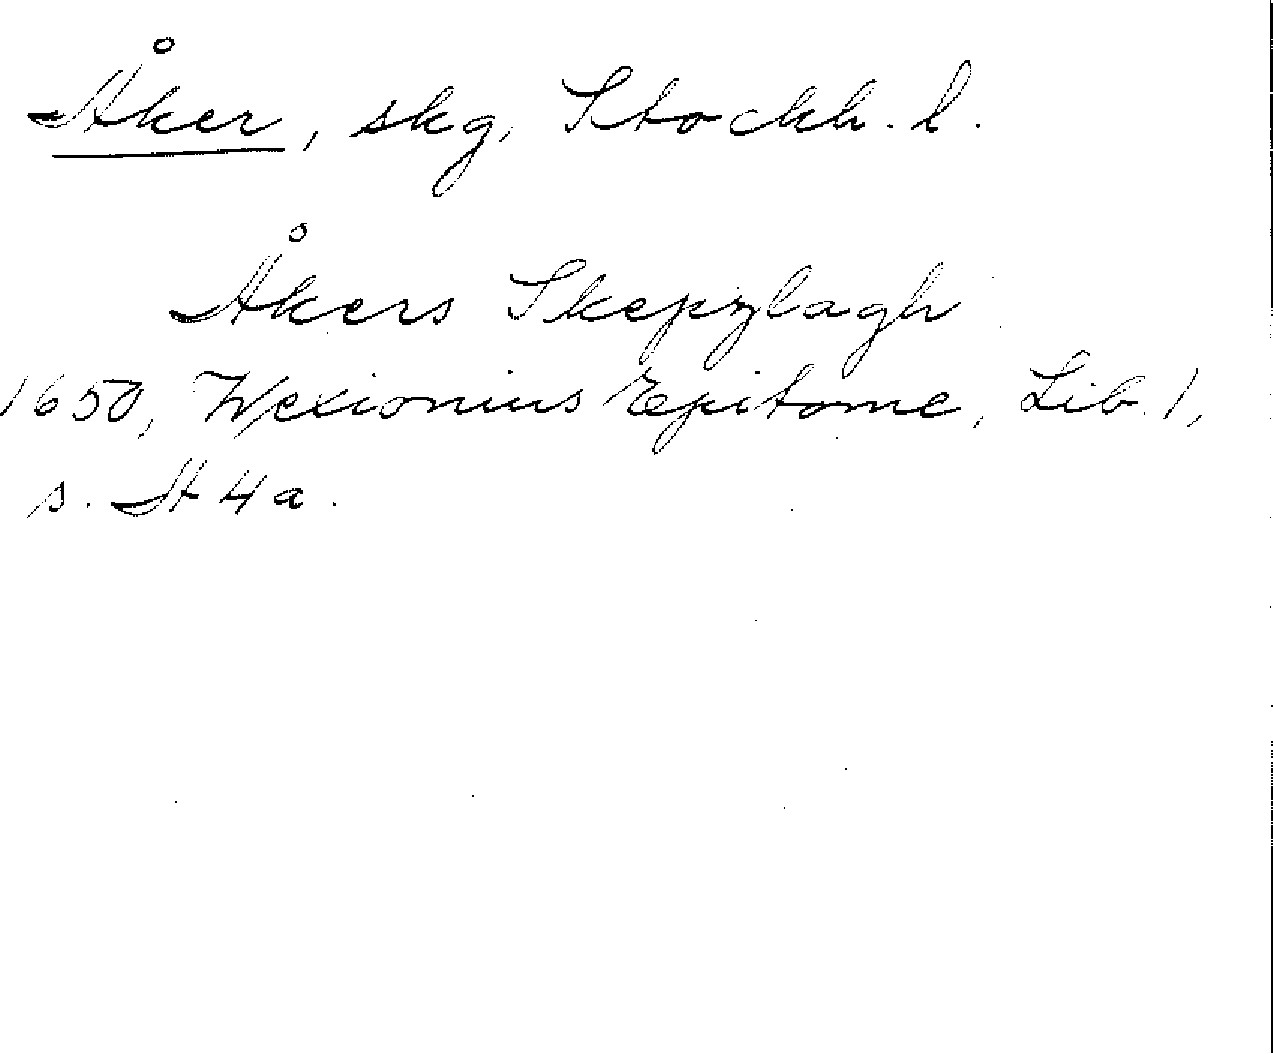 Åker, skg, Stockh. l.
Åkers Skepzlagh
1650, Wexionius Epitome, Lib. 1,
s. A 4 a.